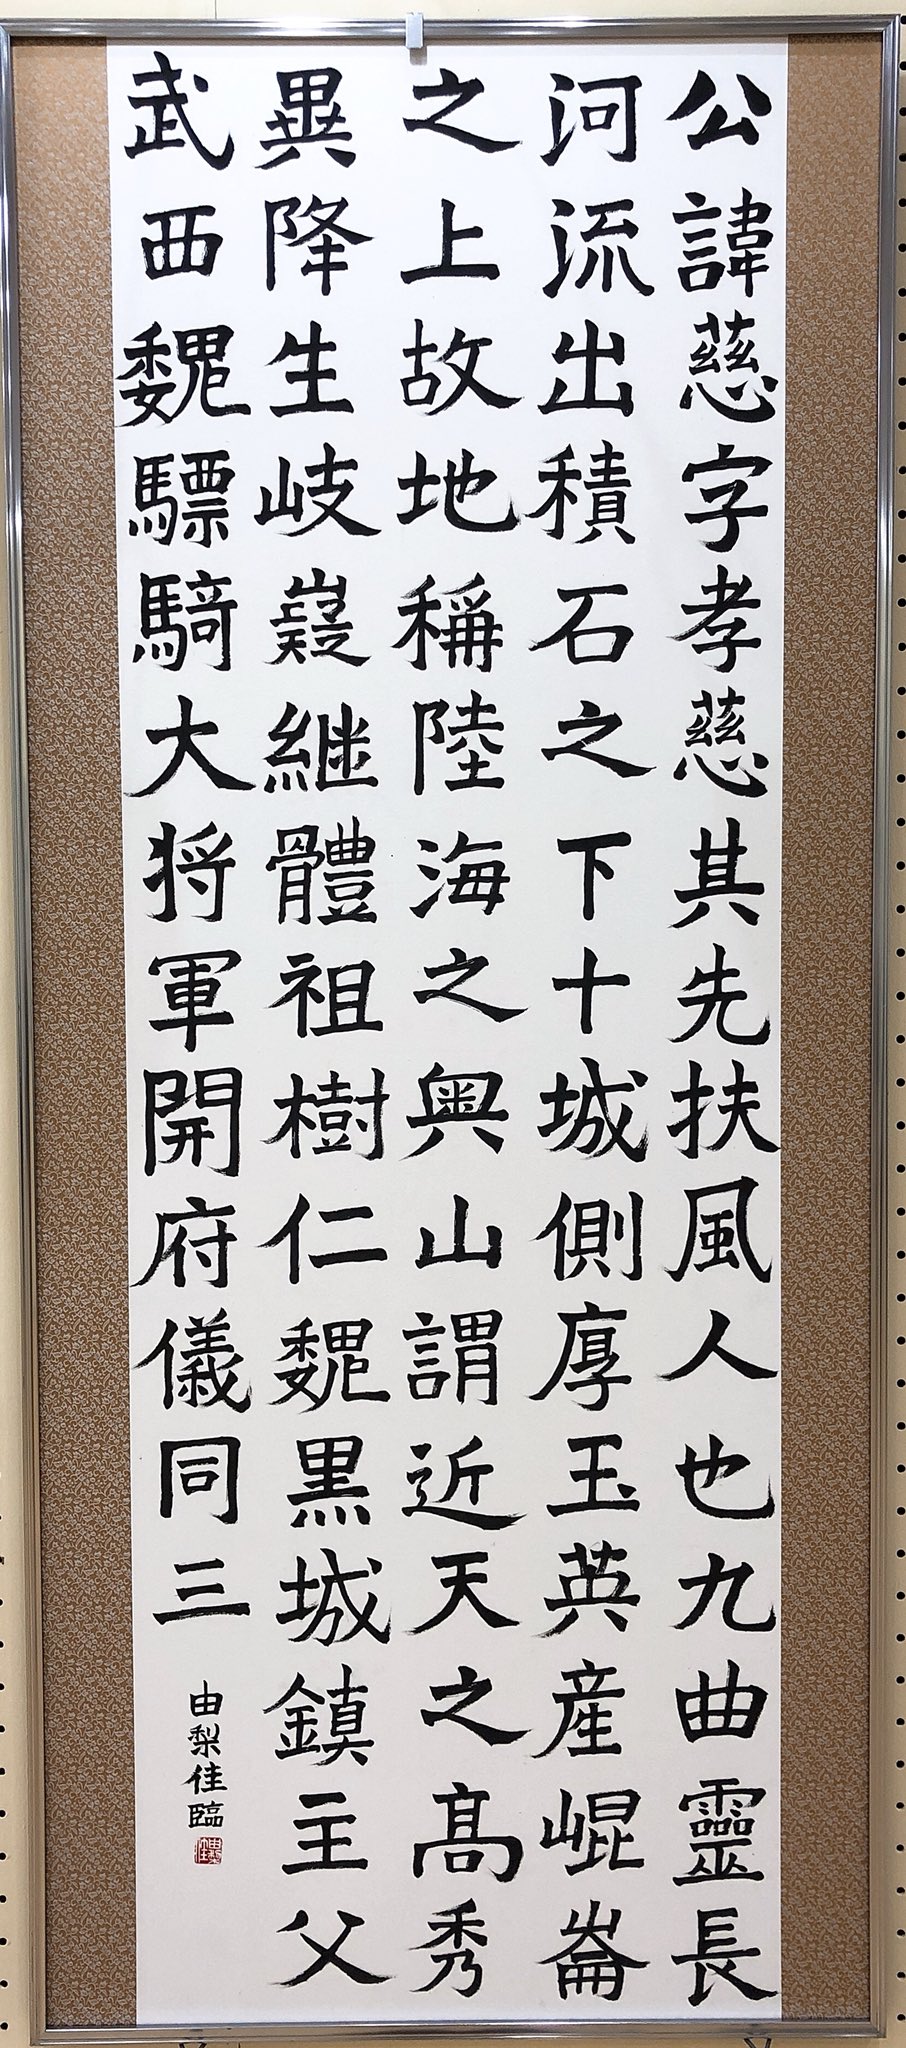 公諱慈字孝慈其先扶風人也九曲靈長
河流出積石之下十城側厚玉英産崐崙
之上故地稱陸海之奥山謂近天之髙秀
異降生岐嶷継體祖樹仁魏黒城鎮主父
武西魏驃騎大将軍開府儀同三
由梨佳臨